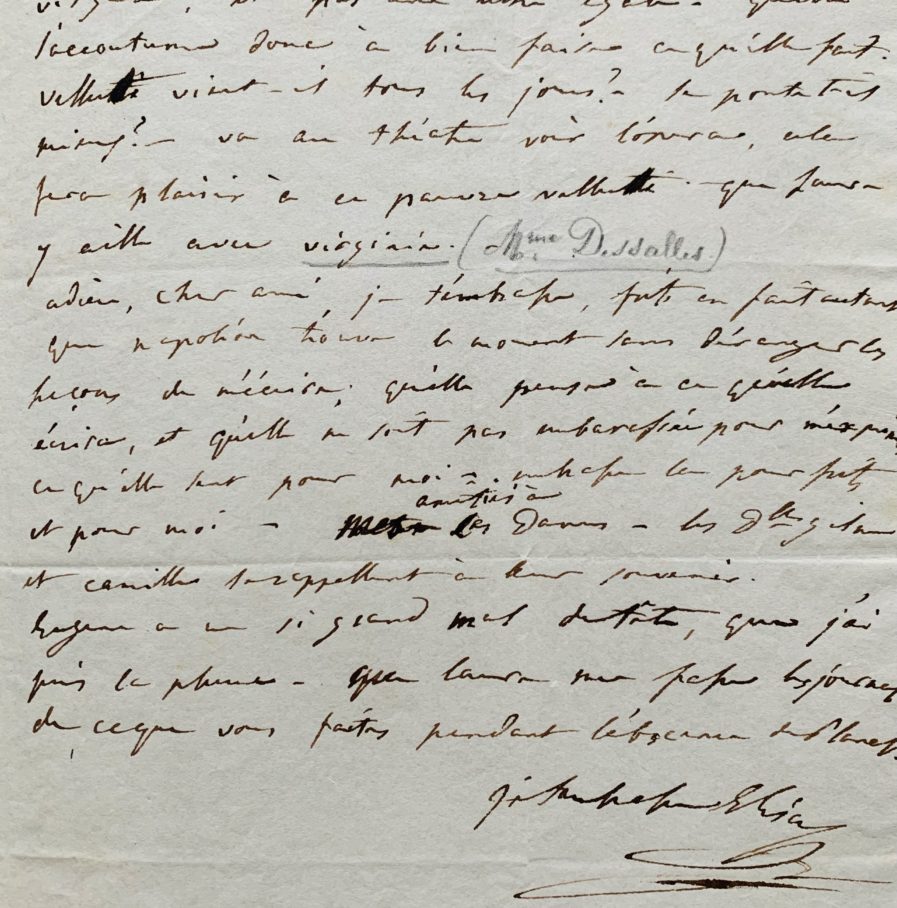 s'accoutume donc à bien faire ce qu'elle fait.
vellutti vient-il tous les jours? - se porte t'il
mieux? - va au théatre voir l'opera, cela
fera plaisir à ce pauvre vellutti. - que laura
y aille avec virginie. (Mme Dessalles)
adieu, cher ami je t'embrasse, faits en fait autant
que napoléon trouve le moment sans déranger les
leçons de m'écrire; qu'elle pense à ce qu'elle
écrire, et qu'elle ne soit pas embarassée pour
ce qu'elle sent pour moi -. embrasse la pour
et pour moi - amitiés à les Dames - les Dlles
et camille se rappellent à leur souvenir.
Eugene a un si grand mal de tête, que j'ai
pris la plume - que laura me fasse les journaux
de ceque vous faites pendant l'absence de
je t'embrasse Elisa